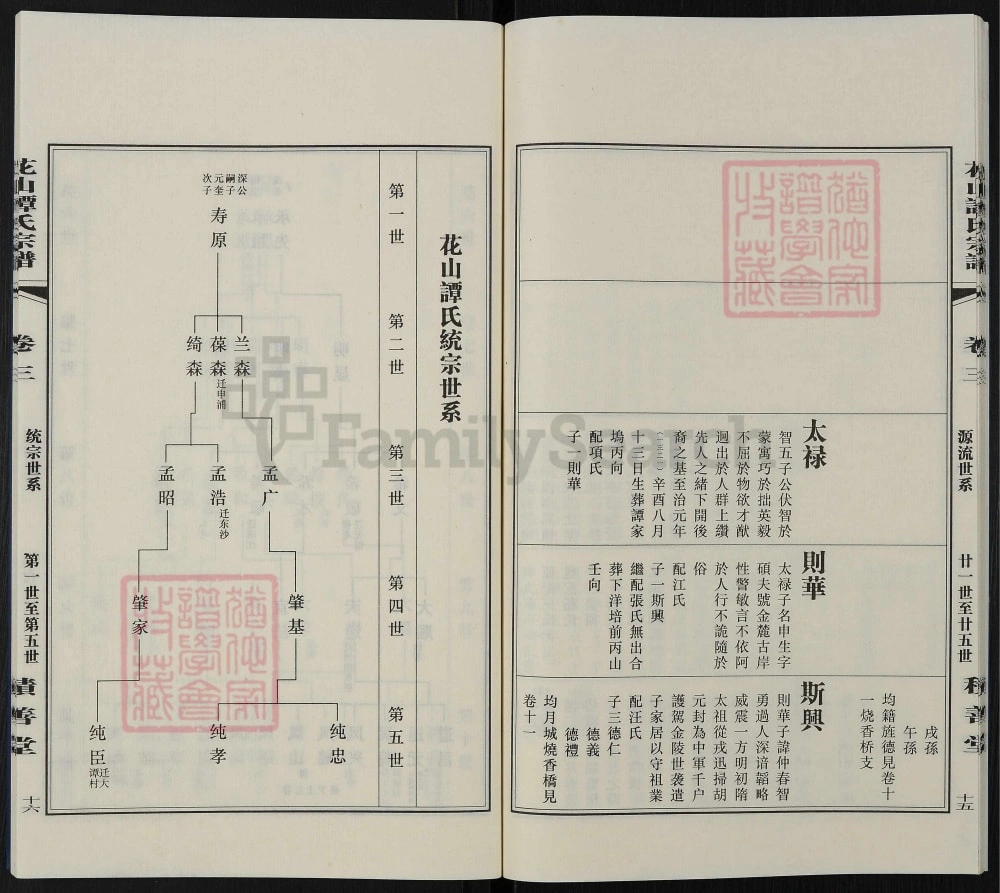 花山譚氏宗譜
卷三
源流世系
廿一世至廿五世
積善堂
十五
猶他家
譜學會
珍藏
太禄
智五子公伏智於
蒙寓巧於拙英毅
不屈於物欲才猷
迥出於人群上纘
先人之緒下開後
裔之基至治元年
(一三二一)辛酉八月
十三日生葬譚家
塢丙向
配項氏
子一則華
則華
太禄子名申生字
碩夫號金麓古岸
性警敏言不依阿
於人行不詭隨於
俗
配江氏
子一斯興
繼配張氏無出合
葬下洋培前丙山
壬向
戌孫
午孫
均籍旌德見卷十
一烧香桥支
斯興
則華子諱仲春智
勇過人深谙韜略
威震一方明初隋
太祖從戎迅掃胡
元封為中軍千户
護駕金陵世袭遣
子家居以守祖業
配汪氏
子三德仁
德義
德禮
均月城燒香橋見
卷十一
花山譚氏統宗世系
第一世
第二世
第三世
第四世
第五世
深公
嗣子
元奎
次子
寿原
兰森
葆森 迁申浦
绮森
孟广
孟浩 迁东沙
孟昭
肇基
肇家
纯忠
纯孝
纯臣 迁大谭村
猶他家
譜學會
珍藏
花山譚氏宗譜
卷三
统宗世系
第一世至第五世
積善堂
十六
FamilySearch